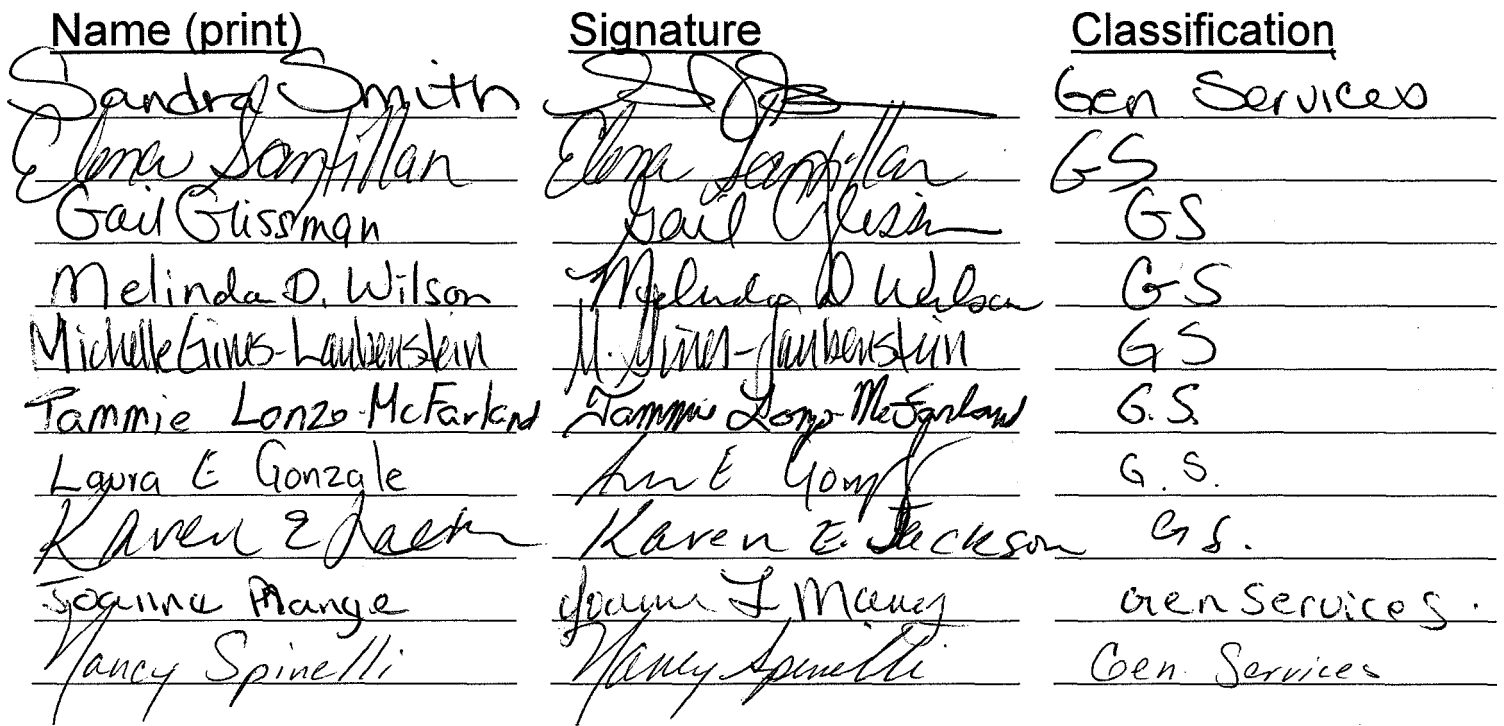 Name (print) Signature Classification
Sandra Smith Gen Services
Elena Santillan Elena Santillan GS
Gail Glissman Gail GS
Melinda D. Wilson Melinda D Wilson GS
Michelle Gines-Laubenstein M. Gines-Laubenstein GS
Tammie Lonzo-McFarland Tammie Lonzo-McFarland G.S.
Laura E Gonzale E G.S.
Karen E Karen E. Jackson G.S.
Joanne L Gen Services.
Nancy Spinelli Nancy Spinelli Gen. Services